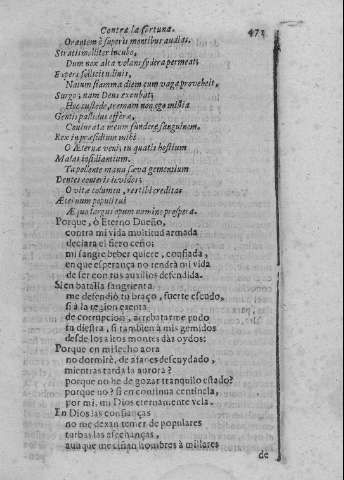 Contra la fortuna. 473
Orantem è superis montibus audias.
Stratis molliter incubo,
Dum nox alta volans sydera permeat;
Expers sollicitudinis,
Natum flamma diem cum vaga provehit,
Surgo; nam Deus excubat;
Hoc custode, tremam non ego millia
Gentis passibus efferæ,
Coniurata meum fundere sanguinem.
Rex in præsidium mihi
O Æterne veni; tu quatis hostium
Malas insilientium.
Tu pollente manu sæva gementium
Dentes conteris invidos;
O vitæ columen, restibi creditas
Æternum populi tui
Æquo largus opum numine prospera.
Porque, ò Eterno Dueño,
contra mi vida multitud armada
declara el fiero ceño:
mi sangre beber quiere, confiada,
en que esperança no tendrà mi vida
de ser con tus auxilios defendida.
Si en batalla sangrienta
me defendiò tu braço, fuerte escudo,
si à la region exenta
de corrupcion, arrebatarme pudo
tu diestra, si tambien à mis gemidos
desde los altos montes dàs oydos:
Porque en mi lecho aora
no dormirè, de afanes descuydado,
mientras tarda la aurora?
porque no he de gozar tranquilo estado?
porque no? si en continua centinela,
por mi, mi Dios eternamente vela.
En Dios las confianças
no me dexan temer de populares
turbas las assechanças,
aunque me ciñan hombres à millares
de